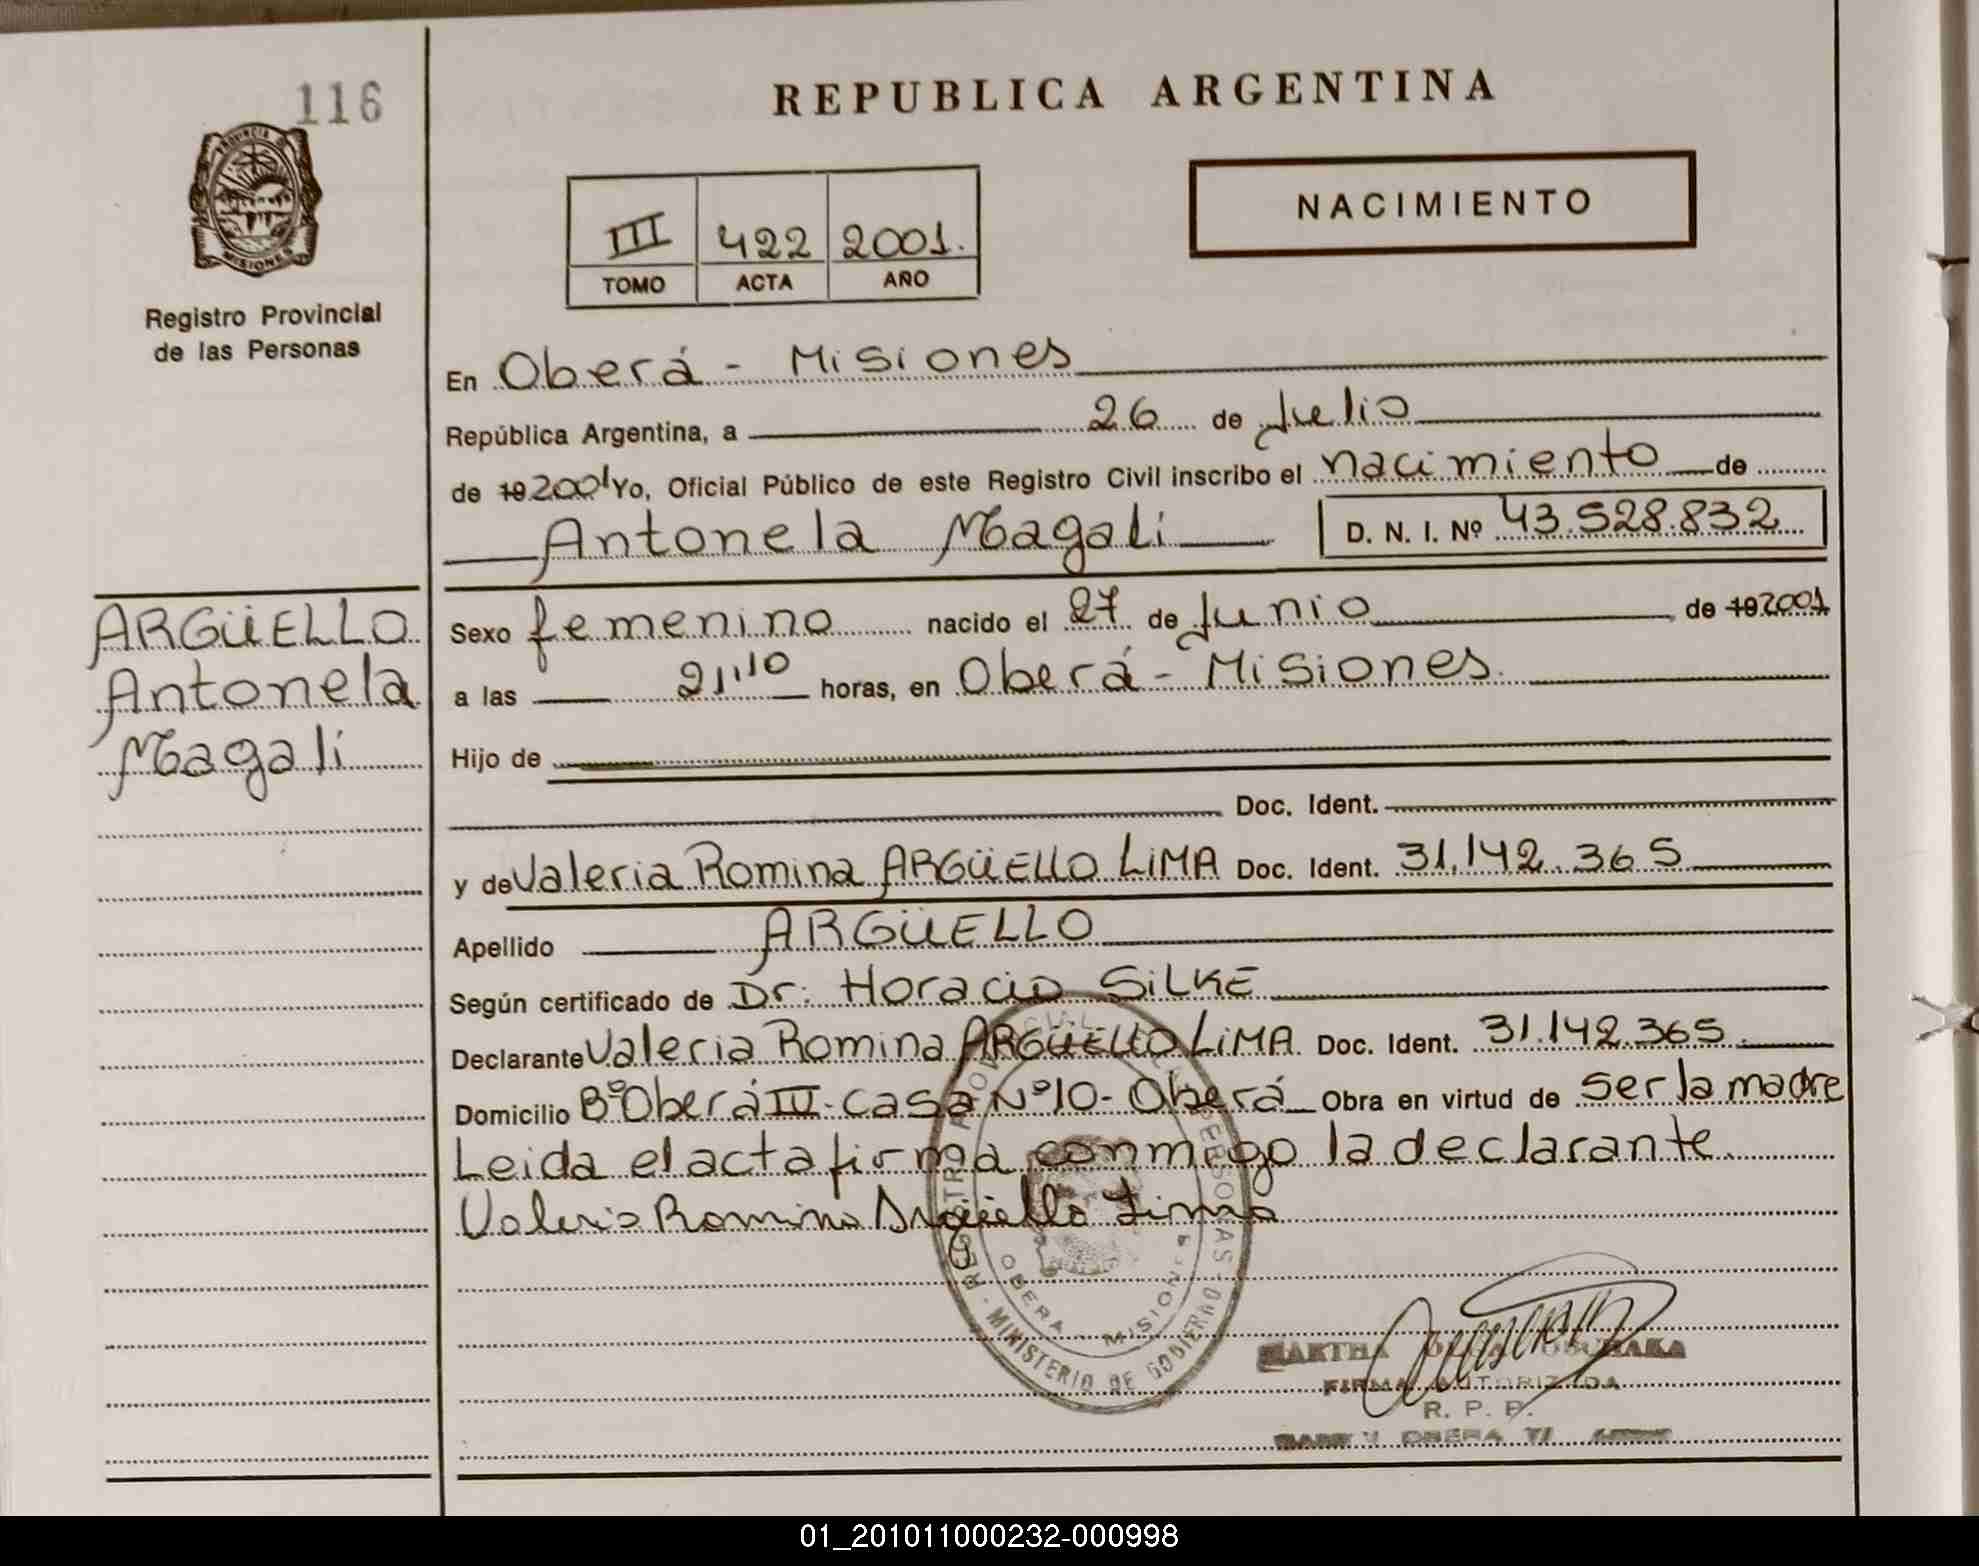 116
REPUBLICA ARGENTINA
PROVINCIA D
MISIONES
Registro Provincial
de las Personas
III 422 2001.
TOMO ACTA AÑO
NACIMIENTO
En Oberá - Misiones
República Argentina, a 26 de Julio
de 19 2001 Yo, Oficial Público de este Registro Civil inscribo el nacimiento de
Antonela Magalí D. N. I. Nº 43.528.832
ARGÜELLO
Antonela
Magalí
Sexo femenino nacido el 27 de Junio de 19 2001
a las 21,10 horas, en Oberá - Misiones.
Hijo de
Doc. Ident.
y de Valeria Romina ARGÜELLO LIMA Doc. Ident. 31.142.365
Apellido ARGÜELLO
Según certificado de Dr. Horacio SILKE
Declarante Valeria Romina ARGÜELLO LIMA. Doc. Ident. 31.142.365.
Domicilio Bº Oberá IV - Casa Nº 10 - Oberá Obra en virtud de ser la madre
Leida el acta firma conmigo la declarante
Valeria Romina Argüello Lima
OBERA MISIONES
MINISTERIO DE GOBIERNO
MARTHA
FIRMA AUTORIZADA
R. P. P.
OBERA
01_201011000232-000998